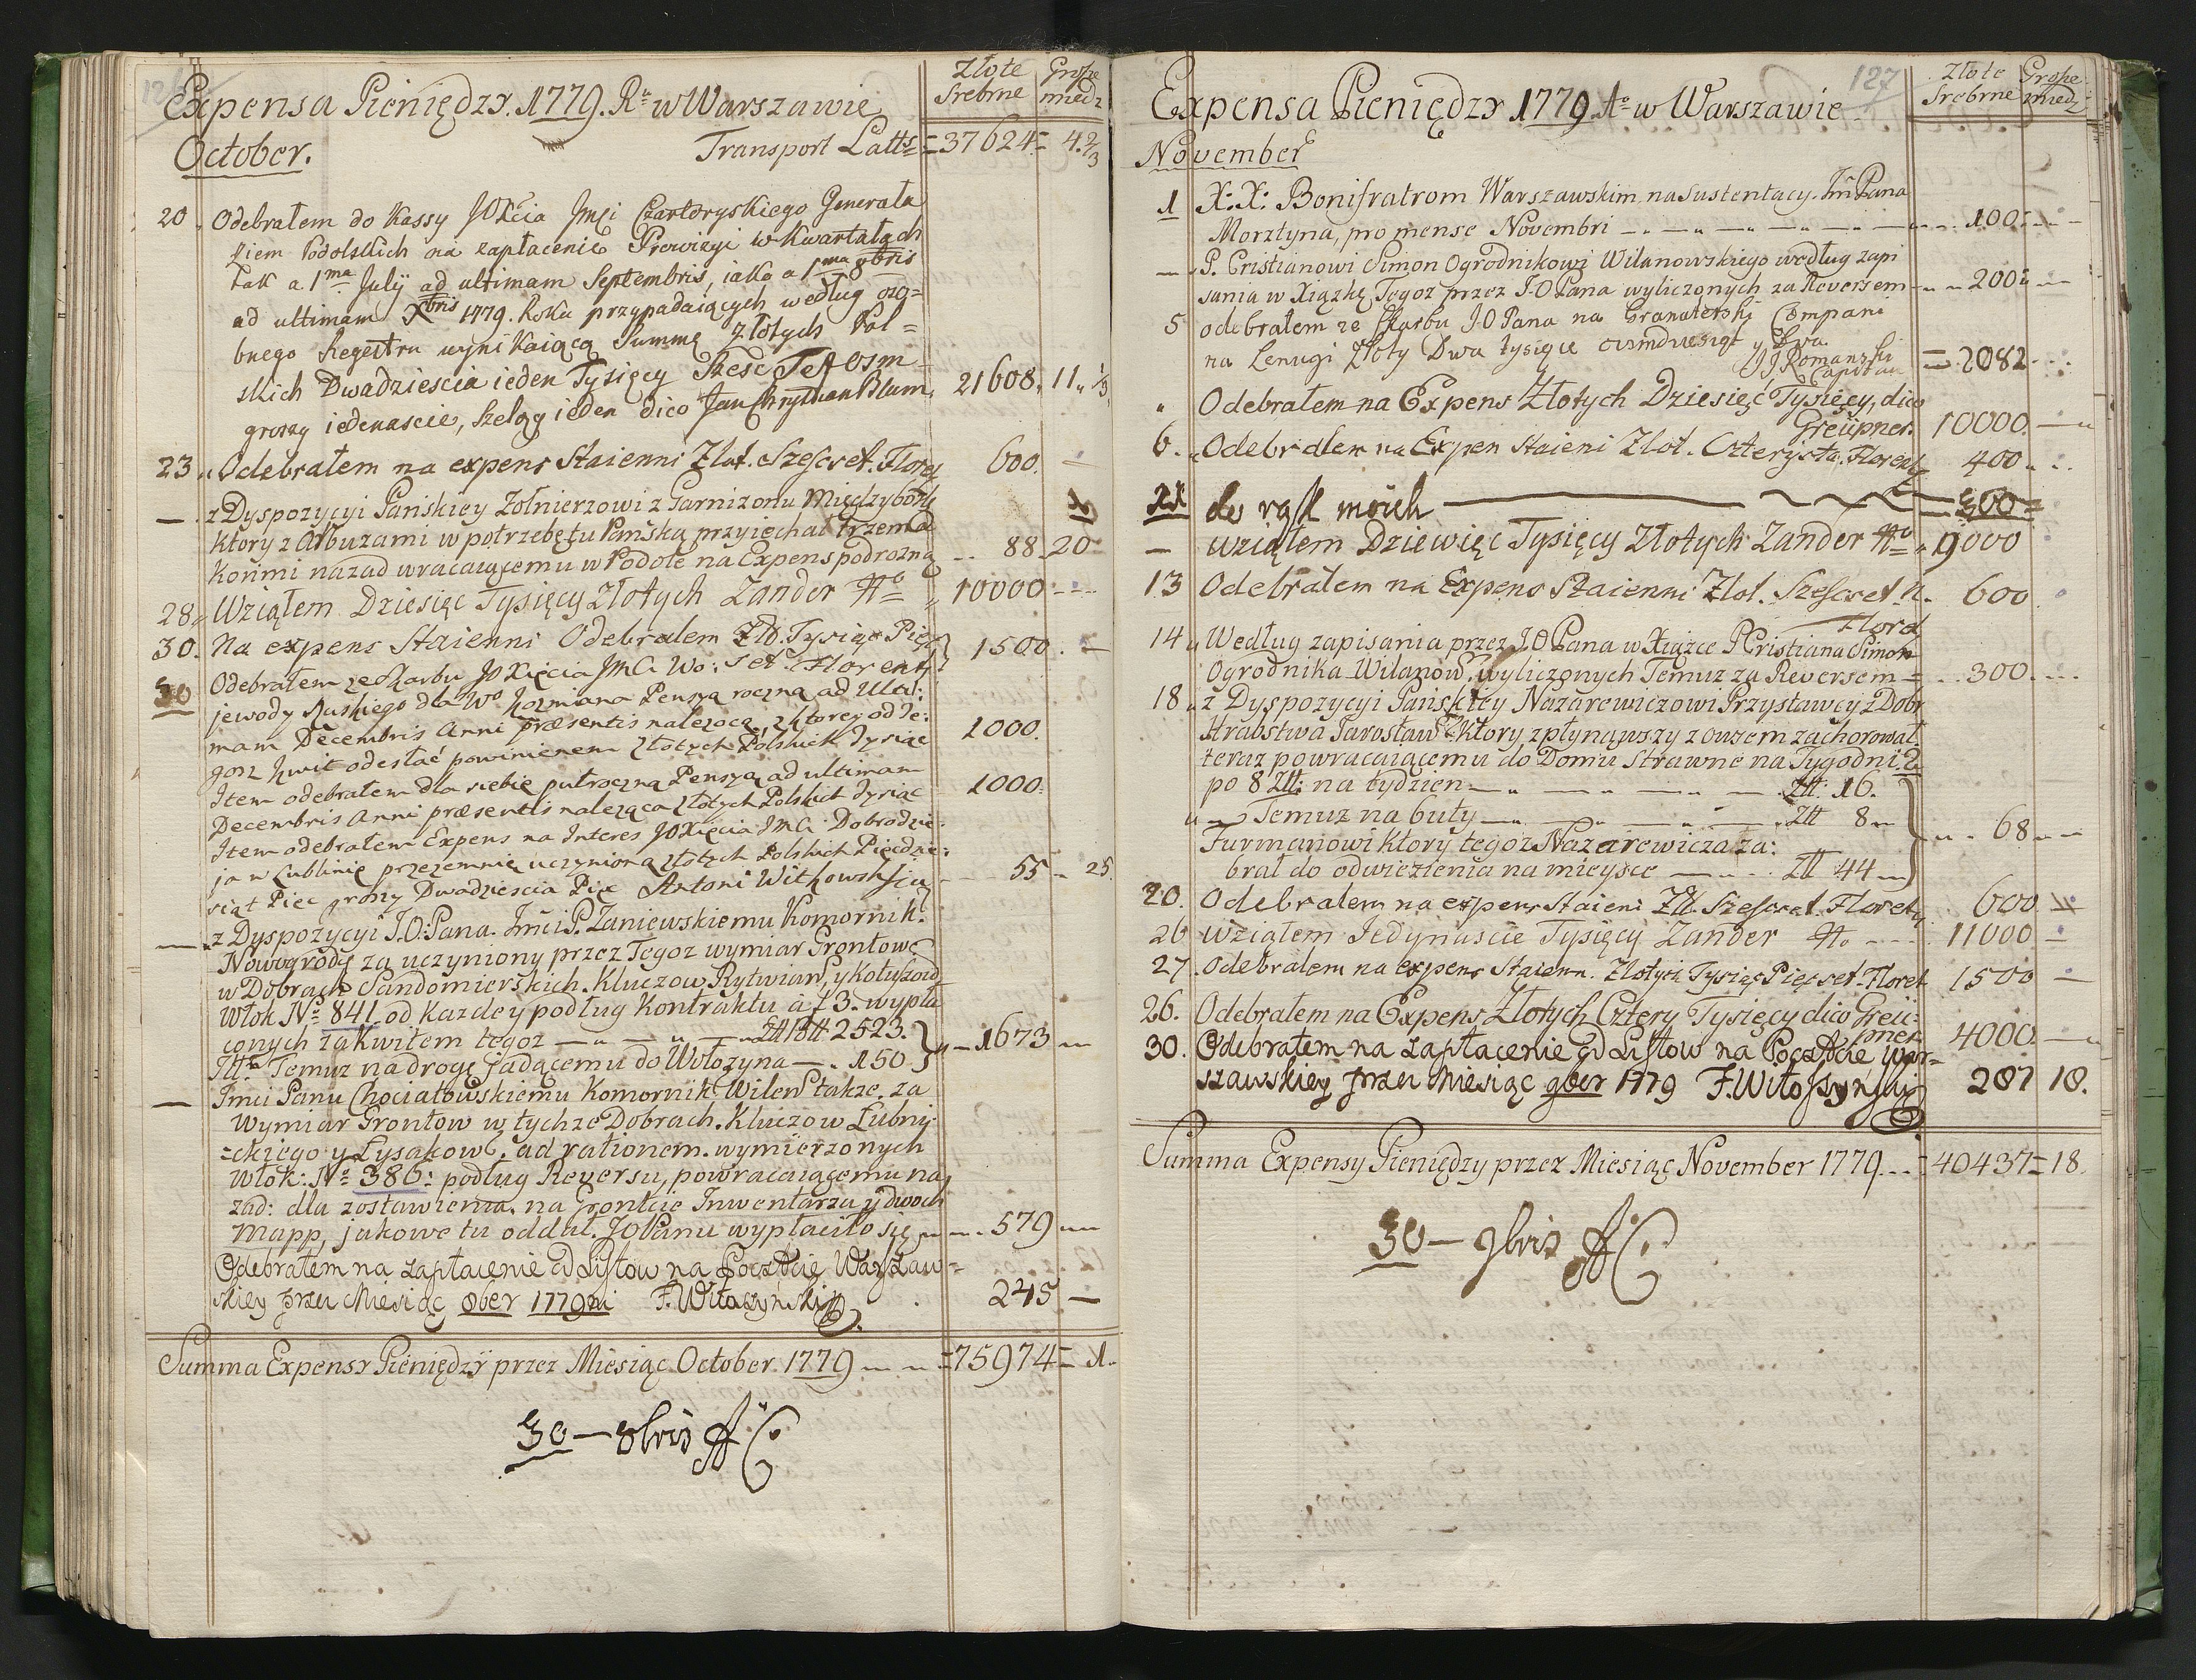 126
Złote Grosze
Srebrne miedz
Expensa Pieniędzy. 1779. Ru w Warszawie
October. Transport Latts = 37624 = 4. 2/3
20 „ Odebrałem do Kassy JOXcia Jmci Czartoryskiego Generała
Ziem Podolskich na zapłacenie Prowizyi w Kwartałach
tak a 1ma Julÿ ad ultimam Septembris, iako a 1ma 8bris
ad ultimam Xbris 1779. Roku przypadaiących według oso=
bnego Regestru wynikaiącą Summę Złotych Pol=
skich Dwadziescia ieden Tysięcy Szesc Set osm
groszy iedenascie, Szeląg ieden dico Jan Chrystian Blum, 21608„ 11„ 1/3
23 „ Odebrałem na expens Staienni Zlot. Szescset. Florej 600. —
— „ z Dyspozycyi Pańskiey Zołnierzowi z Garnizonu Międzybozk
ktory z Arbuzami w potrzebę tu Pańską przyiechał trzema
Końmi nazad wracaiącemu w Podole na Expens podrozną .. 88 „ 20
28 „ Wziąłem Dziesięc Tysięcy Złotych Zander „ 10000 ---
30. Na expens Staienni Odebralem Złt. Tysiąc Pięć
set. Florenty 1500. —
30 Odebrałem ze Skarbu JOXięcia JMCi Wo:
jewody Ruskiego dla Wo Kozmiana Pensyą roczną ad Ulti:
mam Decembris Anni præsentis nalezącą, z ktorey od Je:
gosz kwit odesłać powinienem złotych Polskich Tysiąc 1000.
Item odebrałem dla siebie pułroczną Pensyą ad ultimam
Decembris anni præsentis nalezącą złotych Polskich Tysiąc 1000.
Item odebrałem Expens na Interes JOXięcia JMCi Dobrodzie:
ja w Lublinie przezemnie uczynioną złotych Polskich Pięćdzie:
siąt Pięc groszy Dwadziescia Pięc Antoni Witkowski 55 „ 25.
— „ z Dyspozycyi J.O: Pana. Jmci P. Zaniewskiemu Komornik.
Nowogródz za uczyniony przez Tegoz wymiar Grontow
w Dobrach Sandomierskich. Kluczow Rytwian, y Kołuszow
Włok No 841. od Kazdey podług Kontraktu à f 3. wypła
conych za Kwitem tegoz — „ — „ — Złt 2523.
Itt. Temuz na drogę jadącemu do Wołozyna — . 150. } „ — 1673 „ —
— Jmci Panu Chociatowskiemu Komornik: Wilen: takze. za
Wymiar Grontow w tychze Dobrach. Kluczow Łubni-
=ckiego y Łysakow, ad rationem. wymierzonych
Włok: No 386: podług Reversu, powracaiącemu na
zad: dla zostawienia. na Groncie Inwentarza y dwoch
Mapp, jakowe tu oddał. JOPanu wypłaciło się „ — „ 579 „ —
Odebrałem na zapłacenie od Listow na Poczcie Warszaw=
skiey przez Miesiąc 8ber 1779 F. Witoszyński 245 —
Summa Expensy Pieniędzy przez Miesiąc October 1779 „ — „ = 75974 = 1.
30 — 8bris AC
127
Złote Grosze
Srebrne miedz:
Expensa Pieniędzy 1779 Ao w Warszawie
November
1 X: X: Bonifratrom Warszawskim na Sustentacy. Jm Pana
Morztyna, pro mense Novembri — „ — „ — „ — „ — „ 100: —
— „ P. Cristianowi Simon Ogrodnikowi Wilanowskiego według zapi
sania w Xiązkę Tegoz przez J.O Pana wyliczonych za Reversem „ — „ 200 „ —
5 odebrałem ze Skarbu J O Pana na Granaterski Compani
na Lenugi Złoty Dwa tysiące osmdziesiąt y Dwa
J Romanski
Capitan = 2082 . . .
„ Odebrałem na Expens Złotych Dziesięć Tysięcy, dico
Greüpner. 10000. —
6. „ Odebrałem na Expen Staieni Zlot. Czterysta. Florenty 400 „ .
11 do rąk moich 300 =
— wziąłem Dziewięc Tysięcy Złotych Zander „ 9000
13 Odebrałem na Expens Staienni Zlot. Szescset N.
Florej 600
14 „ Według zapisania przez J.O Pana w Xiązce P Cristiana Simon
Ogrodnika Wilanow. wyliczonych Temuz za Reversem = . . 300. . . .
18 „ z Dyspozycyi Pańskiey Nazarewiczowi Przystawcy z Dobr
Hrabstwa Jarosław: Ktory zpłynąwszy z owzem zachorował.
teraz powracaiącemu do Domu Strawne na Tygodni 2.
po 8 Złt: na tydzien — „ — „ — „ — . Złt: 16.
„ — Temuz na buty — „ — „ — „ — „ Złt 8 „
Furmanowi Ktory tegoz Nazarewicza za:
brał do odwiezienia na mieysce — „ — . . Złt 44 „ } „ — „ 68 „ —
20. Odebralem na expens Staieni Złt. Szescset. Florety 600
26 wziąlem Jedynascie Tysięcy Zander ---- 11000 —
27. Odebralem na expens Staienn. Zlotych Tysiąc Pięcset. Floret 1500 —
26. Odebrałem na Expens Złotych Cztery Tysięcy dico Greü:
pner 4000. —
30. Odebrałem na zapłacenie od Listow na Poczcie War=
szawskiey przez Miesiąc 9ber 1779 F. Witoszyński 287 18.
Summa Expensy Pieniędzy przez Miesiąc November 1779. . = 40437 = 18
30 — 9bris AC